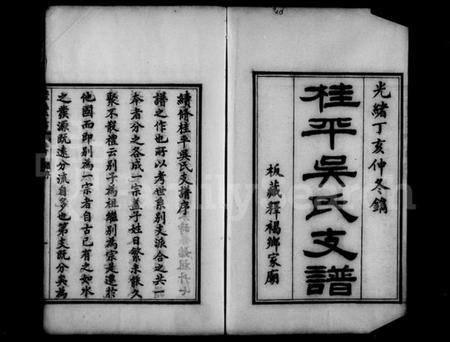 光緒丁亥仲冬鐫
桂平吳氏支譜
板藏釋褐鄉家廟
續修桂平吳氏支譜序
譜之作也所以考世系別支派合之共一
本者分之各成一宗蓋子姓日繁未散久
聚不散禮云別子為祖繼別為宗是遷於
他國而即別為一宗者自古已有之如水
之發源既遠分流自多也第支既分矣為